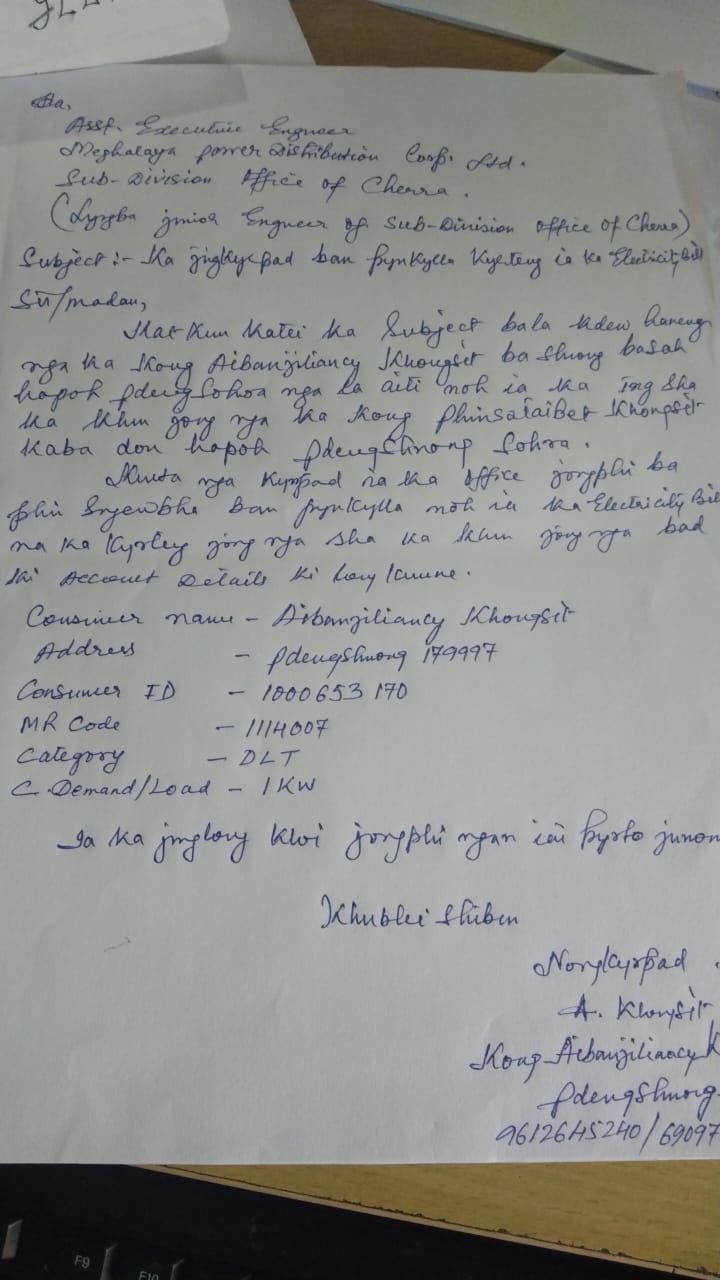 Ha,
Asst. Executive Engneer
Meghalaya power Distribution Corp. Ltd.
Sub-Division Office of Cherra.
(Lyngba jmior Engneer of Sub-Division office of Cherra)
Subject :- Ka jingkyrpad ban pynkylla kyrteng ia ka Electricity Bill
Sir/madam,
Kat kum katei ka Subject bala kdew haneng
nga ka Kong Aibanjiliancy Khongsit ba shong basah
hapoh Pdeng Sohra nga la aiti noh ia ka ïng sha
ka khun jong nga ka Kong Phinsaiaibet Khongsit
kaba don hapoh PdengShnong Sohra.
Kumta nga kyrpad ia ka office jongphi ba
phin sngewbha ban pynkylla noh ia ka Electricity Bill
na ka kyrteng jong nga sha ka khun jong nga bad
ki Account Details ki long kumne.
Consumer name - Aibanjiliancy Khongsit
Address - PdengShnong 179997
Consumer ID - 1000653170
MR Code - 1114007
Category - DLT
C. Demand/Load - 1 KW
Ia ka jinglong kloi jongphi ngan iai kyrto junom
Khublei Shibun
Nongkyrpad
A. Khongsit
Kong Aibanjiliancy K
PdengShnong
9612645240/69097
F9
F10